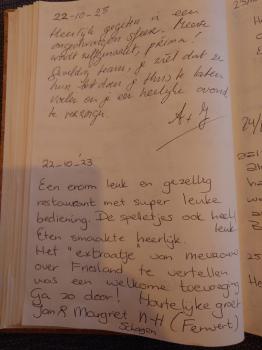 22-10-23
Heerlijk gegeten in een
ongedwongen sfeer. Mooie
wordt zelfgemaakt, prima!
team, je ziet dat er
hun best doen je thuis te laten
voelen en je een heerlijke avond
te verzorgen.
A + J
22-10-'23
Een enorm leuk en gezellig
restaurant met super leuke
bediening. De spelletjes ook heel
leuk.
Eten smaakte heerlijk.
Het "extraatje van mevrouw
over Friesland te vertellen
was een welkome toevoeging
Ga zo door! Hartelijke groet
Jan & Margret N-H (Ferwert)
Schagen